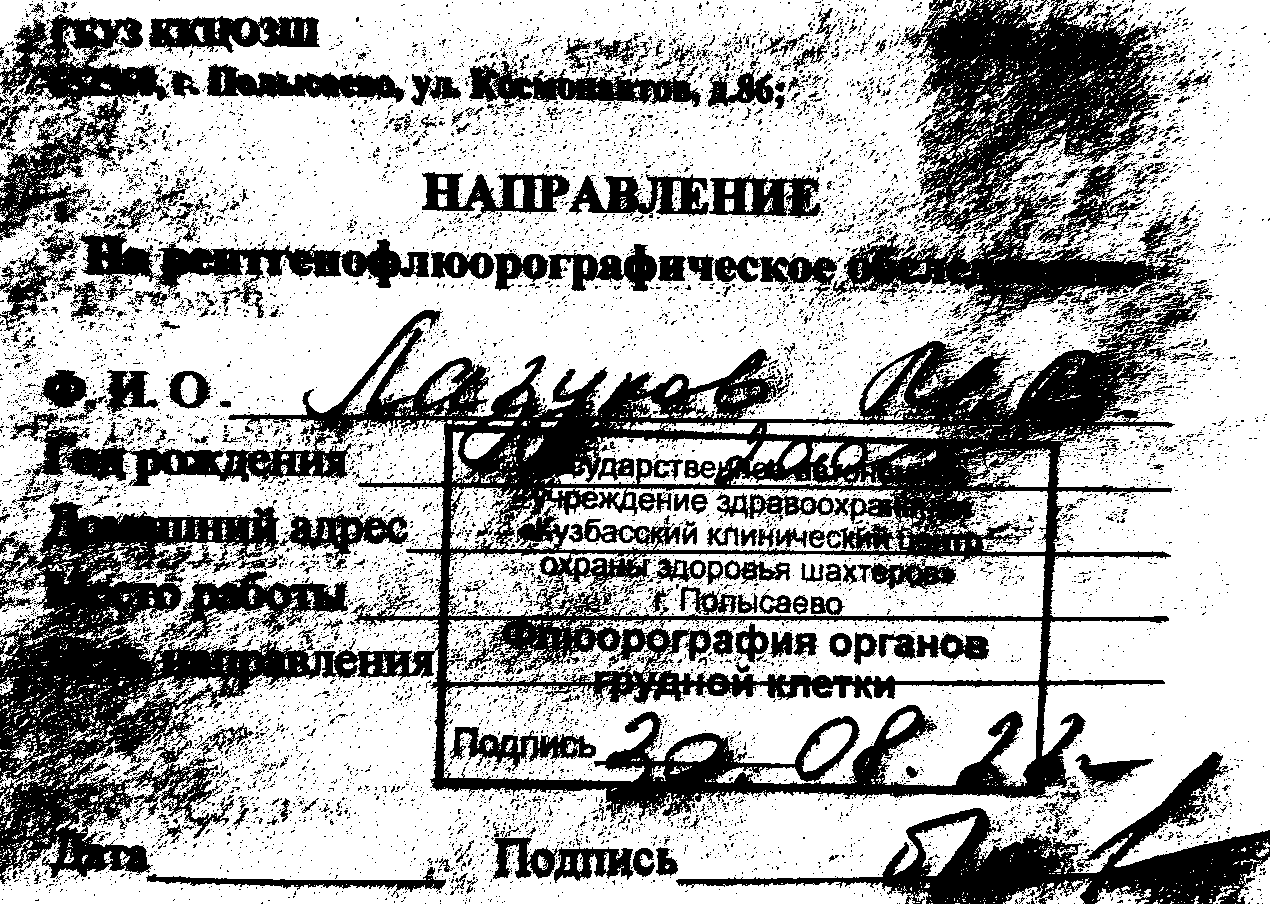 ГКУЗ ККЦОЗШ
г. Полысаево, ул. Космонавтов, д.86;
НАПРАВЛЕНИЕ
На рентгенофлюорографическое обследование
Ф. И. О. Лазуков
Год рождения
Домашний адрес
Место работы
Цель направления
Государственное автономное
учреждение здравоохранения
«Кузбасский клинический центр
охраны здоровья шахтеров»
г. Полысаево
Флюорография органов
грудной клетки
Подпись
Дата Подпись